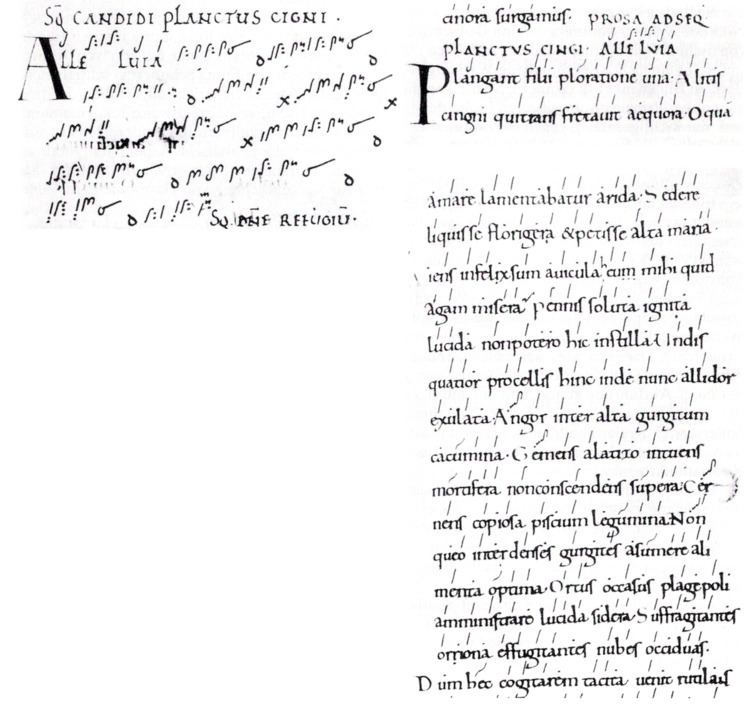 Sq̄ CANDIDI PLANCTUS CIGNI .
ALLE LUIA
Sq̄. REFUGIŪ.
canora surgamus. PROSA AD SEQ
PLANCTVS CINGI. ALLE LVIA
Plangant filii ploratione una. Alitis
cingni qui transfretauit aequora. O qua
amare lamentabatur arida. Sedere
liquisse florigera & petisse alta maria.
iens infelix sum auicula heu mihi quid
agam misera Pennis soluta ignita
lucida non potero hic instilla Undis
quatior procellis hinc inde nunc allidor
exulata. Angor inter alta gurgitum
cacumina. Gemens alatizo intuens
mortifera non conscendens supera. Cer
nens copiosa piscium legumina. Non
queo inter denses gurgites asumere ali
menta optima. Ortus occasus plage poli
amministrare lucida sidera. Suffragitantes
orriona effugitantes nubes occiduas.
Dum hec cogitarem tacita uenit rutilais